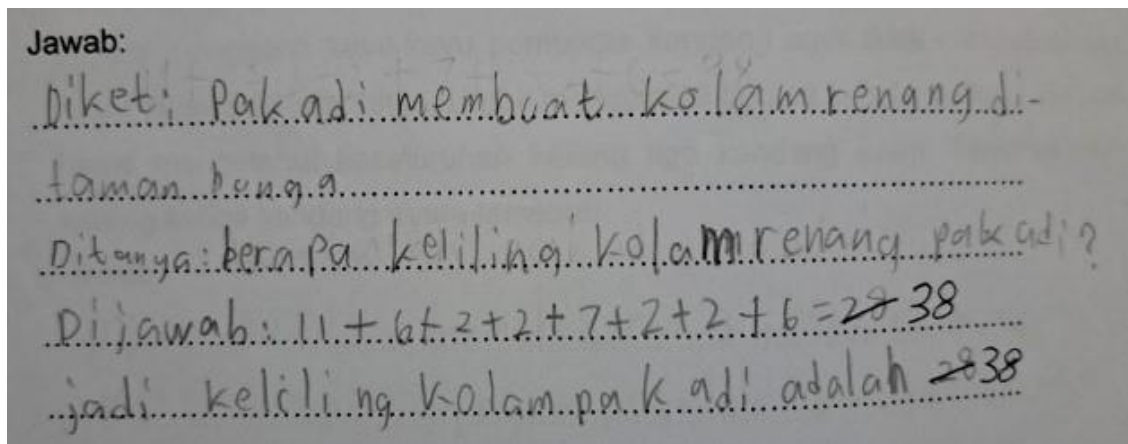 Jawab:
Diket: Pak adi membuat kolam renang di-
taman bunga
Ditanya: berapa keliling kolam renang pak adi?
Dijawab: 11 + 6 + 2 + 2 + 7 + 2 + 2 + 6 = 28 38
jadi keliling kolam pak adi adalah 28 38